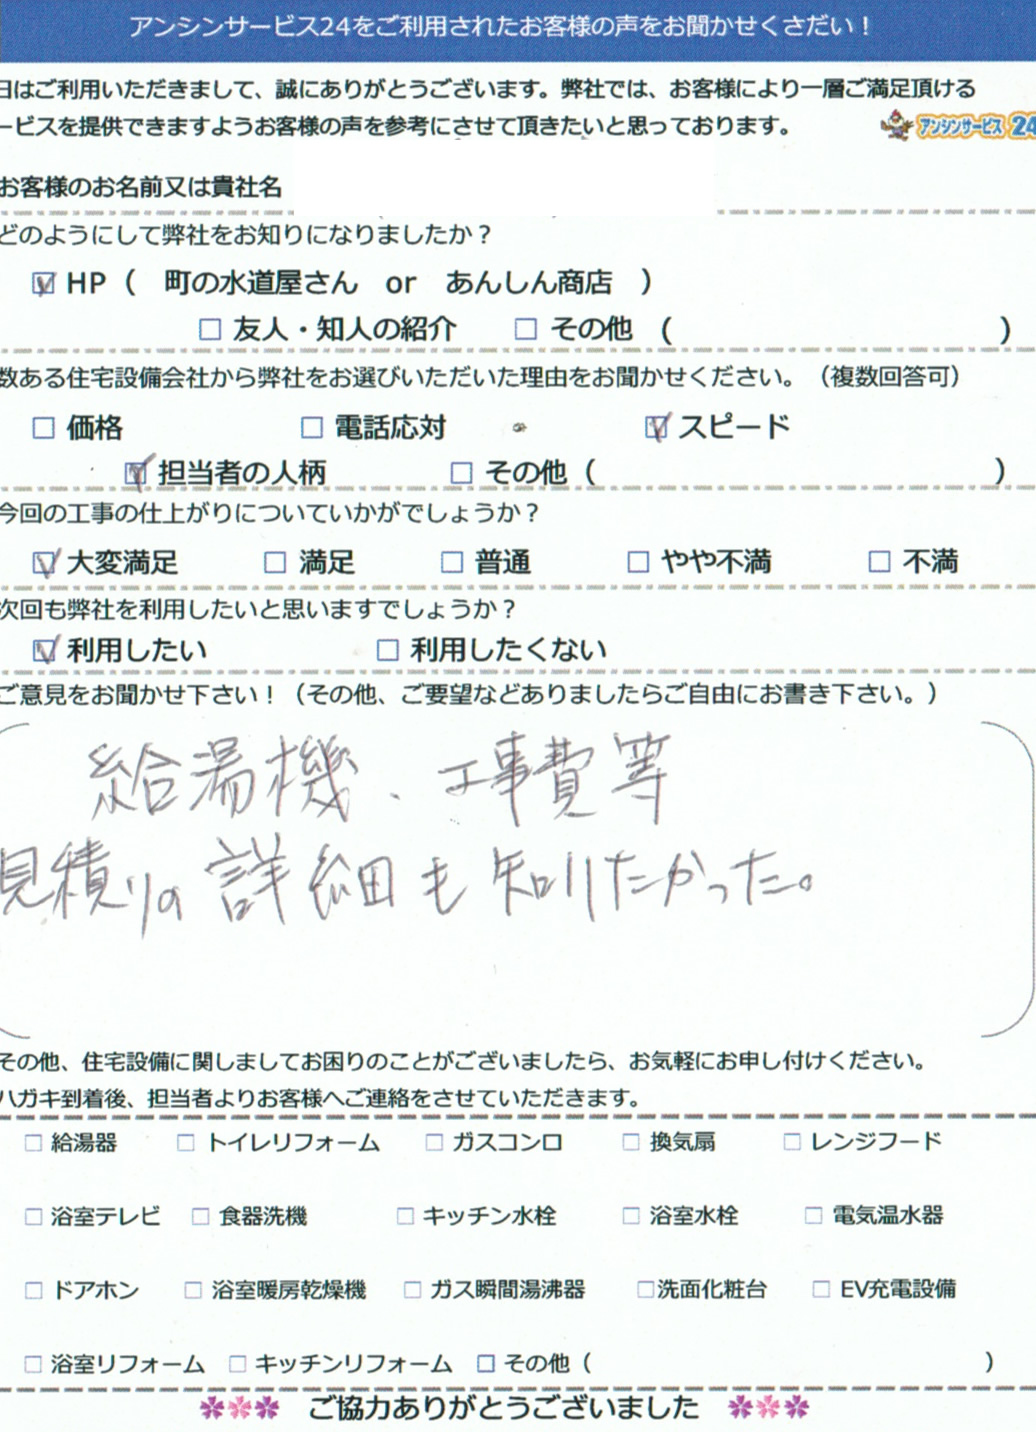 アンシンサービス24をご利用されたお客様の声をお聞かせくさだい！
日はご利用いただきまして、誠にありがとうございます。弊社では、お客様により一層ご満足頂ける
ービスを提供できますようお客様の声を参考にさせて頂きたいと思っております。
アンシンサービス 24
お客様のお名前又は貴社名
どのようにして弊社をお知りになりましたか？
☑ HP（　町の水道屋さん　or　あんしん商店　）
□ 友人・知人の紹介　□ その他　（　　　）
数ある住宅設備会社から弊社をお選びいただいた理由をお聞かせください。（複数回答可）
□ 価格　□ 電話応対　☑ スピード
☑ 担当者の人柄　□ その他（　　　）
今回の工事の仕上がりについていかがでしょうか？
☑ 大変満足　□ 満足　□ 普通　□ やや不満　□ 不満
次回も弊社を利用したいと思いますでしょうか？
☑ 利用したい　□ 利用したくない
ご意見をお聞かせ下さい！（その他、ご要望などありましたらご自由にお書き下さい。）
給湯機、工事費等
見積りの詳細も知りたかった。
その他、住宅設備に関しましてお困りのことがございましたら、お気軽にお申し付けください。
ハガキ到着後、担当者よりお客様へご連絡をさせていただきます。
□ 給湯器　□ トイレリフォーム　□ ガスコンロ　□ 換気扇　□ レンジフード
□ 浴室テレビ　□ 食器洗機　□ キッチン水栓　□ 浴室水栓　□ 電気温水器
□ ドアホン　□ 浴室暖房乾燥機　□ ガス瞬間湯沸器　□洗面化粧台　□ EV充電設備
□ 浴室リフォーム　□ キッチンリフォーム　□ その他（　　　）
ご協力ありがとうございました